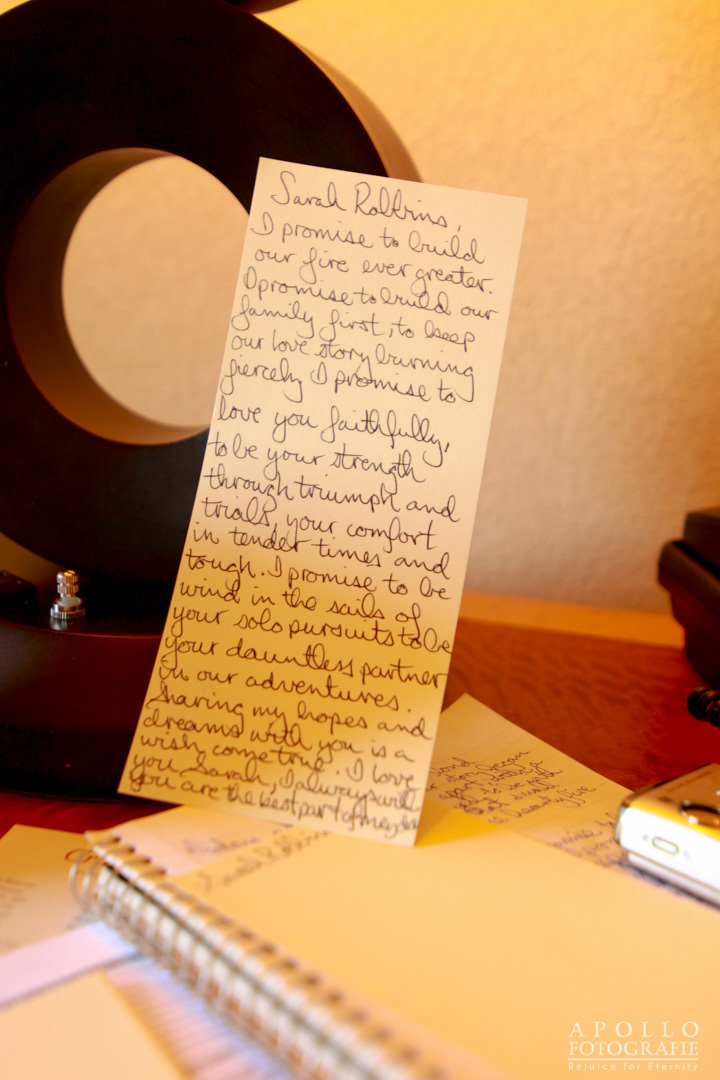 Sarah Robbins,
I promise to build
our fire ever greater.
I promise to build our
family first, to keep
our love story burning
fiercely. I promise to
love you faithfully,
to be your strength
through triumph and
trials, your comfort
in tender times and
tough. I promise to be
wind in the sails of
your solo pursuits to be
your dauntless partner
in our adventures.
Sharing my hopes and
dreams with you is a
wish come true. I love
you Sarah, I always will
You are the best part of my
story began
to be with
Sarah Robbins
APOLLO
FOTOGRAFIE
Rejoice for Eternity